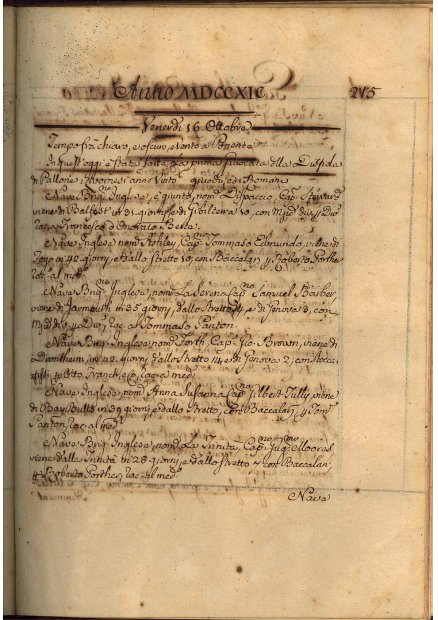 Anno MDCCXIC 275
Venerdi 16 Ottobre
Tempo frà chiaro, e oscuro, e Vento a Ponente
In quest'oggi è stata fatta la prima giuocata della Disfida
di Pallone i Livornesi anno Vinto giuochi i Romani
Nave Inglese, è giunto, nom.
viene di Belfast in giorni, e di Gibilterra 10, con
Francesco e Onorato Berte
Nave Inglese nom. Ashley Cap. Tommaso Edmundo, viene di
Fogo in 42 giorni, e dallo Stretto 10, con Baccalari Roberto Porther
rac. al med.
Nave Brig. Inglese, nom. La Serena Cap. Samuel Barber
viene di Jarmouth in 35 giorni, dallo Stretto 14 e di Genova 3, con
rac. a Tommaso Panton.
Nave Brig. Inglese, nom. Forth, Cap. Gio. Brown, viene di
Drontheim, in 42 giorni dallo Stretto 14 e di Genova 2, con
Otto Franck, e C. rac. a med.
Nave Inglese, nom. Anna Susanna Cap. Gilbert Tully viene
di Bay Bulls in 39 giorni e dallo Stretto, con Baccalari Tom.
Panton, rac. al med.
Nave Brig. Inglese, nom. La Trinità, Cap.
viene dalla Trinità in 28 giorni, e dallo Stretto 7 con Baccalari
Roberto Porther, rac. al med.
Nave